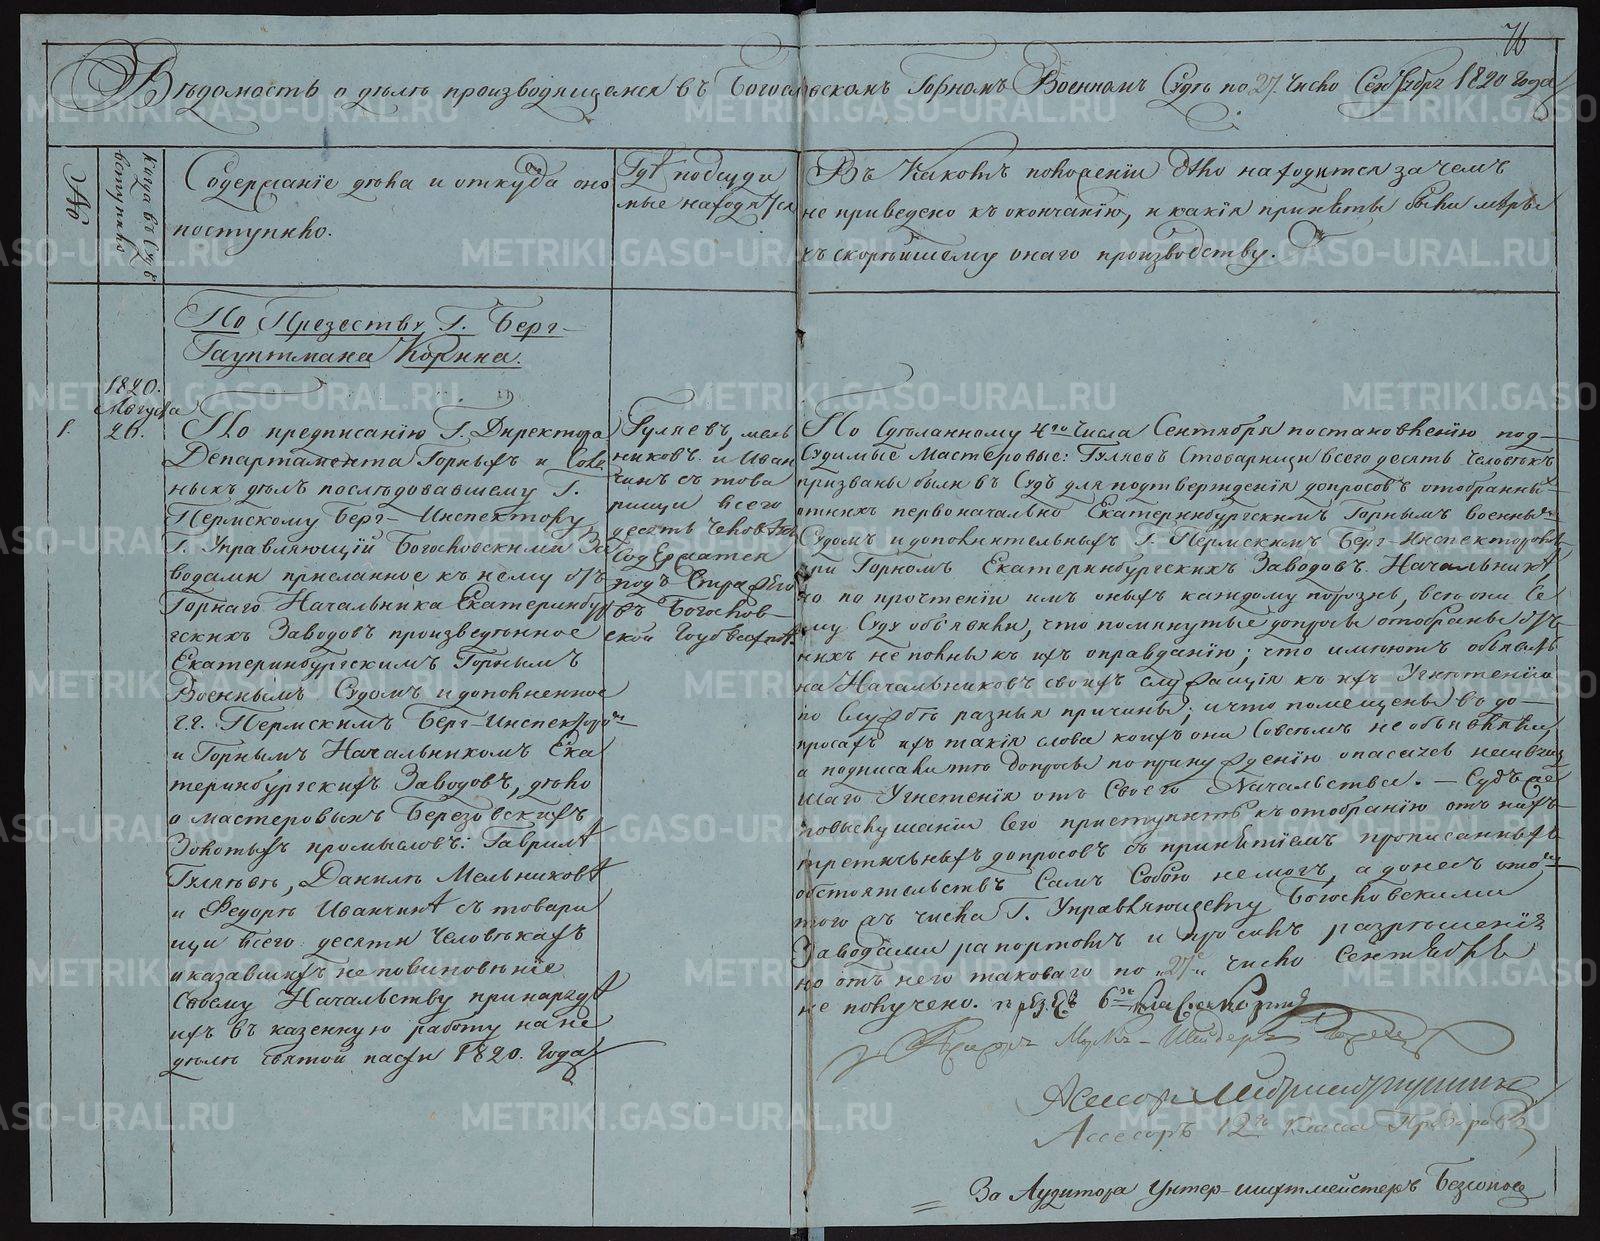 76
Вѣдомость о дѣлѣ производящемся въ Богословскомъ Горномъ Военномъ Судѣ по 27. число Сентября 1820 года
№
Когда въ Судъ
вступило
Содержаніе дѣла и откуда оно
поступило.
Гдѣ подсуди
мые находятся
Въ какомъ положеніи дѣло находится зачемъ
не приведено къ окончанію, и какія приняты были меры
къ скорѣйшему онаго производству.
По Презеству Г. Берг-
Гауптмана Корина.
1.
1820.
Августа
26.
По предписанію Г. Директора
Департамента Горныхъ и Соля
ныхъ дѣлъ последовавшему Г.
Пермскому Берг-Инспектору
Г. Управляющій Богословскими За
водами присланное къ нему отъ
Горнаго Начальника Екатеринбур
гскихъ Заводовъ произведенное
Екатеринбургскимъ Горнымъ
Военнымъ Судомъ и дополненное
г.г. Пермскимъ Берг-Инспекторомъ
и Горнымъ Начальникомъ Ека
теринбургскихъ Заводовъ, дѣло
о мастеровыхъ Березовскихъ
Золотыхъ промысловъ: Гаврилѣ
Гуляевѣ, Данилѣ Мельниковѣ
и Федорѣ Иванчинѣ съ товари
щи всего десяти человѣкахъ
оказавшихъ неповиновѣніе
Своему Начальству принарядѣ
ихъ въ казенную работу на не
дѣлѣ святой пасхи 1820. года
Гуляевъ, мель
никовъ и Иван
чинъ съ това
рищи всего
десять человѣкъ
Содержатся
подъ Стражею
въ Богослов-
ской Гоубвахтѣ.
По Сдѣланному 4го числа Сентября постановленію под-
Судимые Мастеровые: Гуляевъ Стоварищи всего десять человѣкъ
призваны были въ Судъ для подтвержденія допросовъ отобранны-
отнихъ первоначально Екатеринбургскимъ Горнымъ военны-
Судомъ и дополнительныхъ Г. Пермскимъ Берг-Инспекторомъ
при Горномъ Екатеринбургскихъ Заводовъ Начальникѣ,
но по прочтеніи имъ оныхъ каждому порознь, всѣ они Се
му Суду объявили, что помянутые допросы отобраны отъ
нихъ неполны къ ихъ оправданію; что имеютъ объявлѣ
на Начальниковъ своихъ служащія къ ихъ Угнѣтенію
по Службѣ разныя причины; и что помещены въ до-
просахъ ихъ такія слова коихъ они Совсемъ не объявляли,
а подписали тѣ допросы по принужденію опасаясь
шаго Угнетенія отъ Своего Начальства. — Судъ
повыслушаніи Сего приступить къ отобранію отъ нихъ
третичныхъ допросовъ съ принятіемъ прописанныхъ
обстоятельствъ Самъ Собою немогъ, а донесъ ото-
того ж числа Г. Управляющему Богословскими
Заводами рапортомъ и просилъ разрѣшенія
но отъ него таковаго по "27е" число Сентября
не получено.
Ассесоръ
Ассесоръ 12го класса
За Аудитора Унтер-шихтмейстеръ